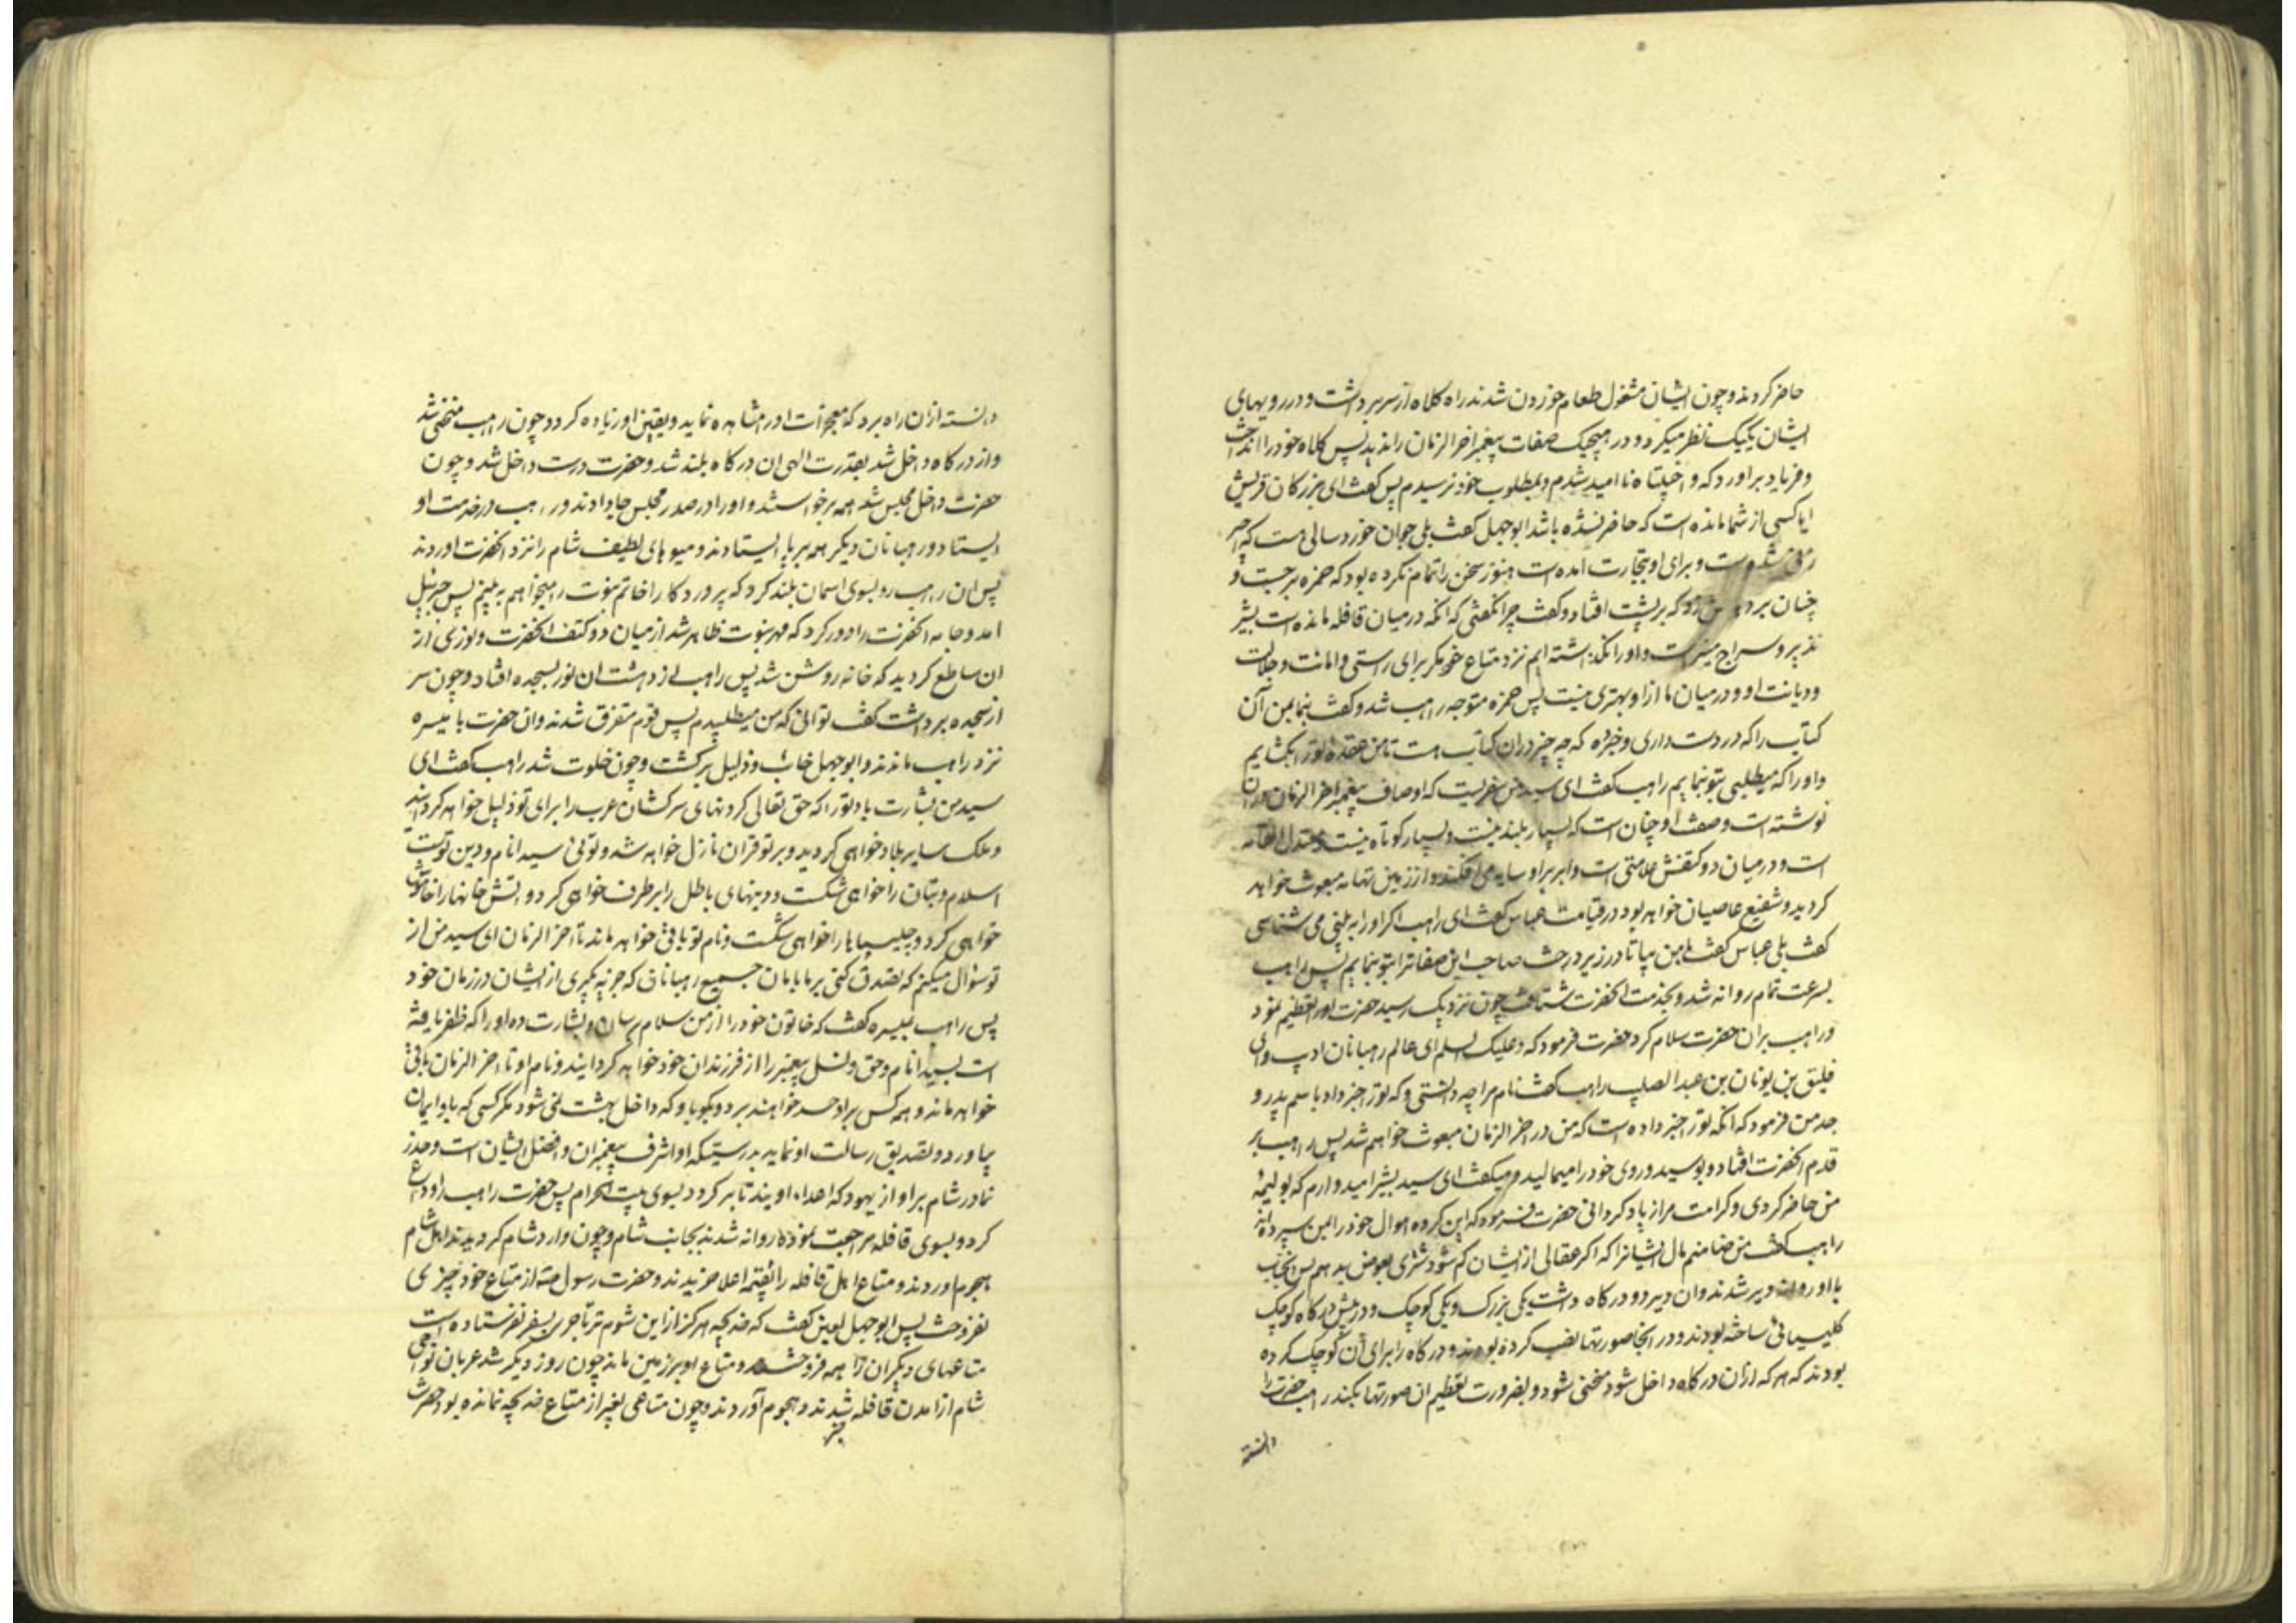 حاضر کردند و چون ایشان مشغول طعام خوردن شدند راه کلاه از سر برداشت و در رویهای
ایشان یکیک نظر میکرد و در هیچیک صفات پیغمبر اخر الزمان را ندید پس کلاه خود را انداخت
و فریاد براورد که واخیبتاه نا امید شدم و بمطلوب خود نرسیدم پس کفت ای بزرکان قریش
ایا کسی از شما مانده است که حاضر نشده باشد ابوجهل کفت بلی جوان خورد سالی هست که اجیر
زنی شده است و برای او بتجارت امده است هنوز سخن را تمام نکرده بود که حمزه برجست و
چنان بر دهنش زد که بر پشت افتاد و کفت چرا نکفتی که انکه در میان قافله مانده است بشیر
نذیر و سراج منیر است و او را نکذاشته ایم نزد متاع خود مکر برای راستی و امانت و جلالت
و دیانت او و در میان ما از او بهتری نیست پس حمزه متوجه راهب شد و کفت بنما بمن آن
کتاب را که در دست داری و خبر ده که چه چیز در ان کتاب هست تا من عقده تو را بکشایم
و او را که میطلبی بتو بنمایم راهب کفت ای سید من سفریست که اوصاف پیغمبر اخر الزمان در ان
نوشته است و صفت او چنان است که بسیار بلند نیست و بسیار کوتاه نیست و معتدل القامه
است و در میان دو کتفش علامتی است و ابر بر او سایه می افکند و از زمین تهامه مبعوث خواهد
کردید و شفیع عاصیان خواهد بود در قیامت عباس کفت ای راهب اکر او را به بینی می شناسی
کفت بلی عباس کفت با من بیا تا در زیر درخت صاحب این صفات را بتو بنمایم پس راهب
بسرعت تمام روانه شد و بخدمت انحضرت شتافت چون نزدیک رسید حضرت او را تعظیم نمود
و راهب بران حضرت سلام کرد حضرت فرمود که و علیک السلم ای عالم رهبانان ادب و ای
فلیق بن یونان بن عبد الصلیب راهب کفت نام مرا چه دانستی و که تو را خبر داد باسم پدر و
جد من فرمود که انکه تو را خبر داده است که من در اخر الزمان مبعوث خواهم شد پس راهب بر
قدم انحضرت افتاد و بوسید و روی خود را میمالید و میکفت ای سید بشر امیدوارم که بولیمه
من حاضر کردی و کرامت مرا زیاد کردانی حضرت فرمود که این کروه اموال خود را بمن سپرده اند
راهب کفت من ضامنم مال ایشانرا که اکر عقالی از ایشان کم شود شتری بعوض بدهم پس انجناب
با او روانه دیر شدند و ان دیر دو درکاه داشت یکی بزرک و یکی کوچک و در پیش درکاه کوچک
کلیسیائی ساخته بودند و در انجا صورتها نصب کرده بودند و درکاه را برای آن کوچک کرده
بودند که هر که از ان درکاه داخل شود منحنی شود و بضرورت تعظیم ان صورتها بکند راهب حضرت را
دانسته
دانسته از ان راه برد که معجزات او را مشاهده نماید و یقین او زیاده کردد چون راهب منحنی شد
و از درکاه داخل شد بقدرت الهی ان درکاه بلند شد و حضرت درست داخل شد و چون
حضرت داخل مجلس شد همه برخواستند و او را در صدر مجلس جا دادند و راهب در خدمت او
ایستاد و رهبانان دیکر همه بر پا ایستادند و میوهای لطیف شام را نزد انحضرت اوردند
پس ان راهب رو بسوی اسمان بلند کرد که پروردکارا خاتم نبوت را میخواهم به بینم پس جبرئیل
امد و جامه انحضرت را دور کرد که مهر نبوت ظاهر شد از میان دو کتف انحضرت و نوری از
ان ساطع کردید که خانه روشن شد پس راهب از دهشت ان نور بسجده افتاد و چون سر
از سجده برداشت کفت توئی انکه من میطلبیدم پس قوم متفرق شدند و ان حضرت با میسره
نزد راهب ماندند و ابوجهل خائب و ذلیل برکشت و چون خلوت شد راهب کفت ای
سید من بشارت باد تو را که حق تعالی کردنهای سرکشان عرب را برای تو ذلیل خواهد کردانید
و ملک سایر بلاد خواهی کردید و بر تو قران نازل خواهد شد و توئی سید انام و دین توست
اسلام و بتان را خواهی شکست و دینهای باطل را برطرف خواهی کرد و اتش خانها را خاموش
خواهی کرد و چلیپاها را خواهی شکست و نام تو باقی خواهد ماند تا اخر الزمان ای سید من از
تو سؤال میکنم که تصدق کنی بر ما بامان جمیع رهبانان که جزیه بکیری از ایشان در زمان خود
پس راهب بمیسره کفت که خاتون خود را از من سلام برسان و بشارت ده او را که ظفر یافته
است بسید انام و حق و نسل پیغمبر را از فرزندان خود خواهد کردایند و نام او تا اخر الزمان باقی
خواهد ماند و همه کس بر او حسد خواهند برد و بکو باو که داخل بهشت نمی شود مکر کسی که باو ایمان
بیاورد و تصدیق رسالت او نماید بدرستیکه او اشرف پیغمبران و افضل ایشان است و حذر
نما در شام بر او از یهود که اعداء اویند تا برکردد بسوی بیت الحرام پس حضرت راهب را وداع
کرد و بسوی قافله مراجعت نموده روانه شدند بجانب شام و چون وارد شام کردیدند اهل شام
هجوم اوردند و متاع اهل قافله را بقیمه اعلا خریدند و حضرت رسول ص از متاع خود چیزی
نفروخت پس ابوجهل لعین کفت که خدیجه هرکز از این شوم تر تاجری بسفر نفرستاده است
متاعهای دیکران را همه فروختند و متاع او بر زمین ماند چون روز دیکر شد عربان نواحی
شام از امدن قافله خبر شدند و هجوم آوردند و چون متاعی بغیر از متاع خدیجه نمانده بود حضرت